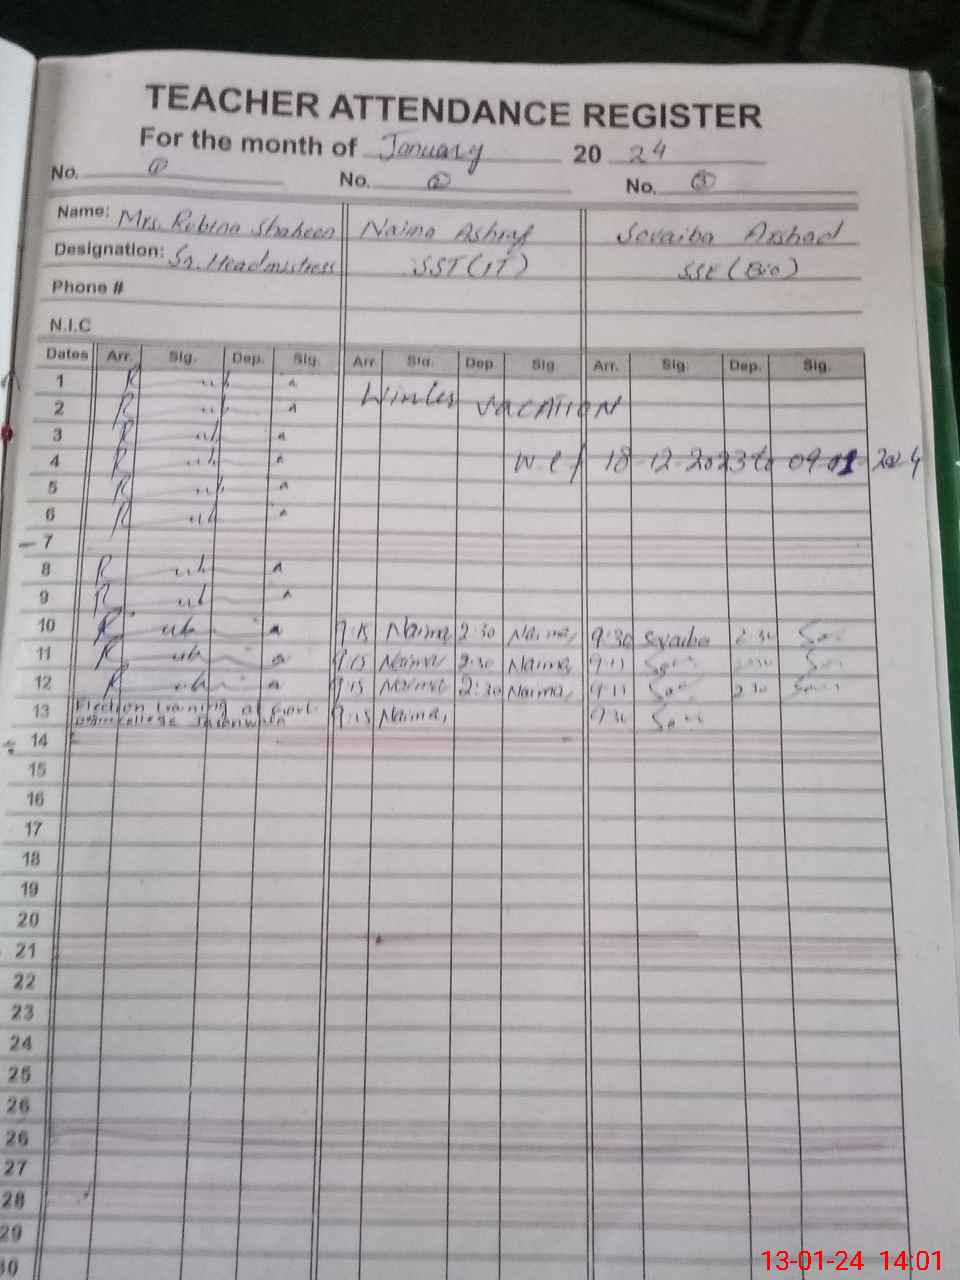 TEACHER ATTENDANCE REGISTER
For the month of January 20 24
No. 1 No. 2 No. 3
Name: Mrs. Rubina Shaheen Naima Ashraf Sovaiba Arshad
Designation: Sr. Headmistress SST (IT) SSE (Bio)
Phone #
N.I.C
Dates Arr. Sig. Dep. Sig. Arr. Sig. Dep. Sig. Arr. Sig. Dep. Sig.
1 R
2 R Winter vacation
3 R
4 R w.e.f 18-12-2023 to 09-01-2024
5 R
6 R
7
8 R
9 R
10 R 9:15 Naima 2:30 Naima 9:30 Sovaiba 2:30
11 R 9:15 Naima 2:30 Naima 9:11
12 R 9:15 Naima 2:30 Naima 9:11 2:30
13 Election training at Govt. college 9:15 Naima 9:30
14
15
16
17
18
19
20
21
22
23
24
25
26
26
27
28
29
30
13-01-24 14:01